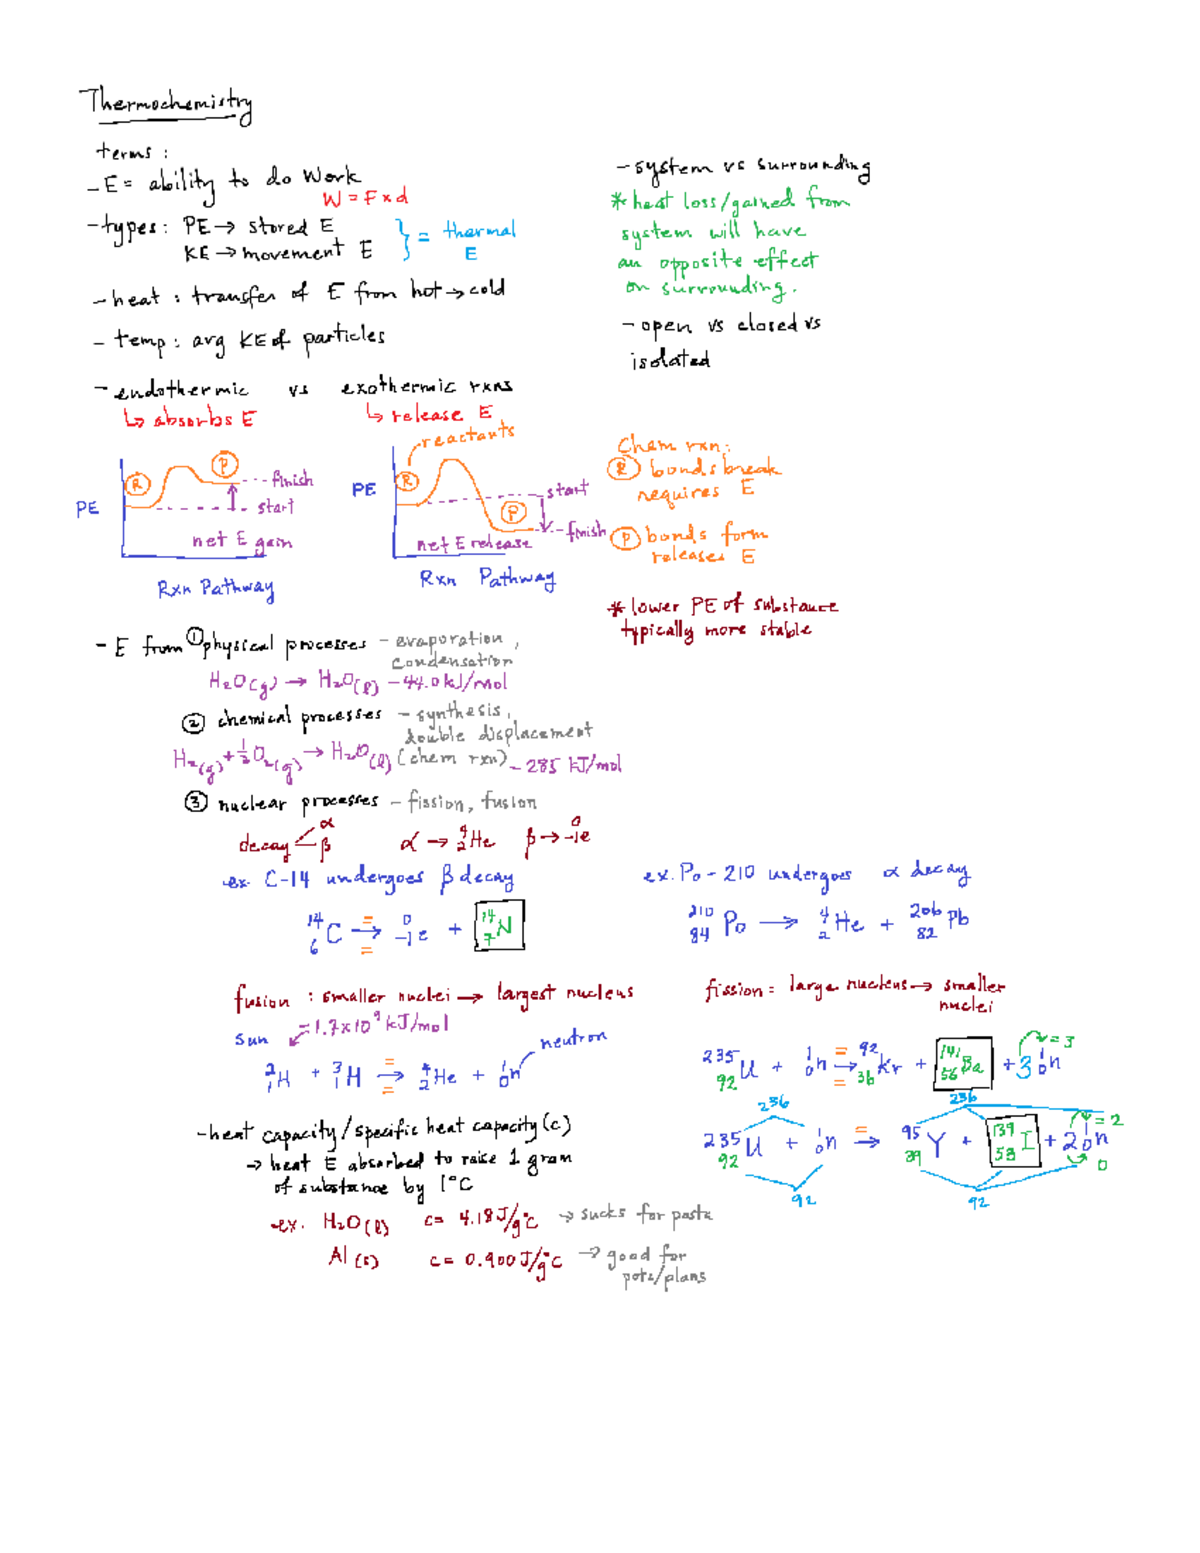 Thermochemistry
terms :
- E = ability to do Work
W = F x d
- types : PE → stored E
KE → movement E
} = thermal E
- heat : transfer of E from hot → cold
- temp : avg KE of particles
- system vs surrounding
* heat loss/gained from
system will have
an opposite effect
on surrounding.
- open vs closed vs
isolated
- endothermic vs exothermic rxns
↳ absorbs E
↳ release E
PE
R
P
finish
start
net E gain
Rxn Pathway
reactants
PE
R
P
start
finish
net E release
Rxn Pathway
Chem rxn:
R bonds break
requires E
P bonds form
releases E
* lower PE of substance
typically more stable
- E from ① physical processes - evaporation ,
condensation
H2O(g) → H2O(l) - 44.0 kJ/mol
② chemical processes - synthesis,
double displacement
(chem rxn)
H2(g) + 1/2 O2(g) → H2O(l) - 285 kJ/mol
③ nuclear processes - fission, fusion
decay < α β
α → 4 2 He β → 0 -1 e
ex. C-14 undergoes β decay
14 6 C → 0 -1 e + 14 7 N
ex. Po - 210 undergoes α decay
210 84 Po → 4 2 He + 206 82 Pb
fusion : smaller nuclei → largest nucleus
= 1.7x10^9 kJ/mol
sun
neutron
2 1 H + 3 1 H → 4 2 He + 1 0 n
fission = large nucleus → smaller
nuclei
235 92 U + 1 0 n → 92 36 Kr + 141 56 Ba + 3 1 0 n
= 3
236
236
235 92 U + 1 0 n → 95 39 Y + 139 53 I + 2 1 0 n
= 2
0
92
92
- heat capacity / specific heat capacity (c)
→ heat E absorbed to raise 1 gram
of substance by 1°C
ex. H2O(l) c = 4.18 J/g°C → sucks for pasta
Al(s) c = 0.900 J/g°C → good for
pots/plans